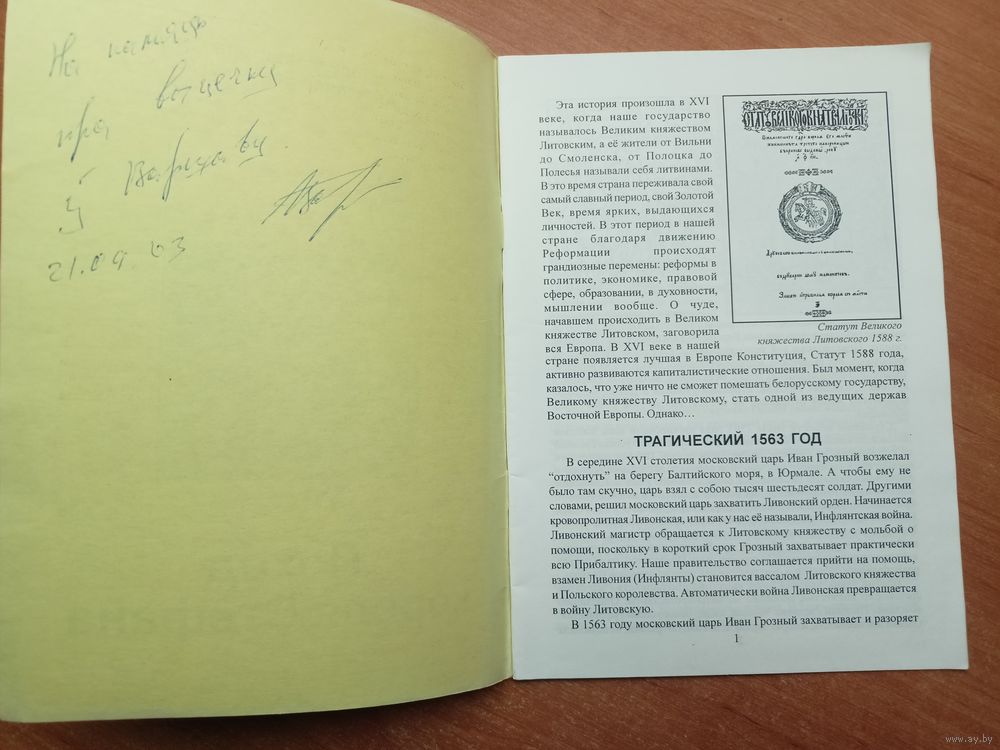 На памяць
пра вылечку
ў Варшаву
21.09.03
Эта история произошла в XVI
веке, когда наше государство
называлось Великим княжеством
Литовским, а её жители от Вильни
до Смоленска, от Полоцка до
Полесья называли себя литвинами.
В это время страна переживала свой
самый славный период, свой Золотой
Век, время ярких, выдающихся
личностей. В этот период в нашей
стране благодаря движению
Реформации происходят
грандиозные перемены: реформы в
политике, экономике, правовой
сфере, образовании, в духовности,
мышлении вообще. О чуде,
начавшем происходить в Великом
княжестве Литовском, заговорила
вся Европа. В XVI веке в нашей
стране появляется лучшая в Европе Конституция, Статут 1588 года,
активно развиваются капиталистические отношения. Был момент, когда
казалось, что уже ничто не сможет помешать белорусскому государству,
Великому княжеству Литовскому, стать одной из ведущих держав
Восточной Европы. Однако…
Статут Великого
княжества Литовского 1588 г.
ТРАГИЧЕСКИЙ 1563 ГОД
В середине XVI столетия московский царь Иван Грозный возжелал
“отдохнуть” на берегу Балтийского моря, в Юрмале. А чтобы ему не
было там скучно, царь взял с собою тысяч шестьдесят солдат. Другими
словами, решил московский царь захватить Ливонский орден. Начинается
кровопролитная Ливонская, или как у нас её называли, Инфлянтская война.
Ливонский магистр обращается к Литовскому княжеству с мольбой о
помощи, поскольку в короткий срок Грозный захватывает практически
всю Прибалтику. Наше правительство соглашается прийти на помощь,
взамен Ливония (Инфлянты) становится вассалом Литовского княжества
и Польского королевства. Автоматически война Ливонская превращается
в войну Литовскую.
В 1563 году московский царь Иван Грозный захватывает и разоряет
1
www.ay.by